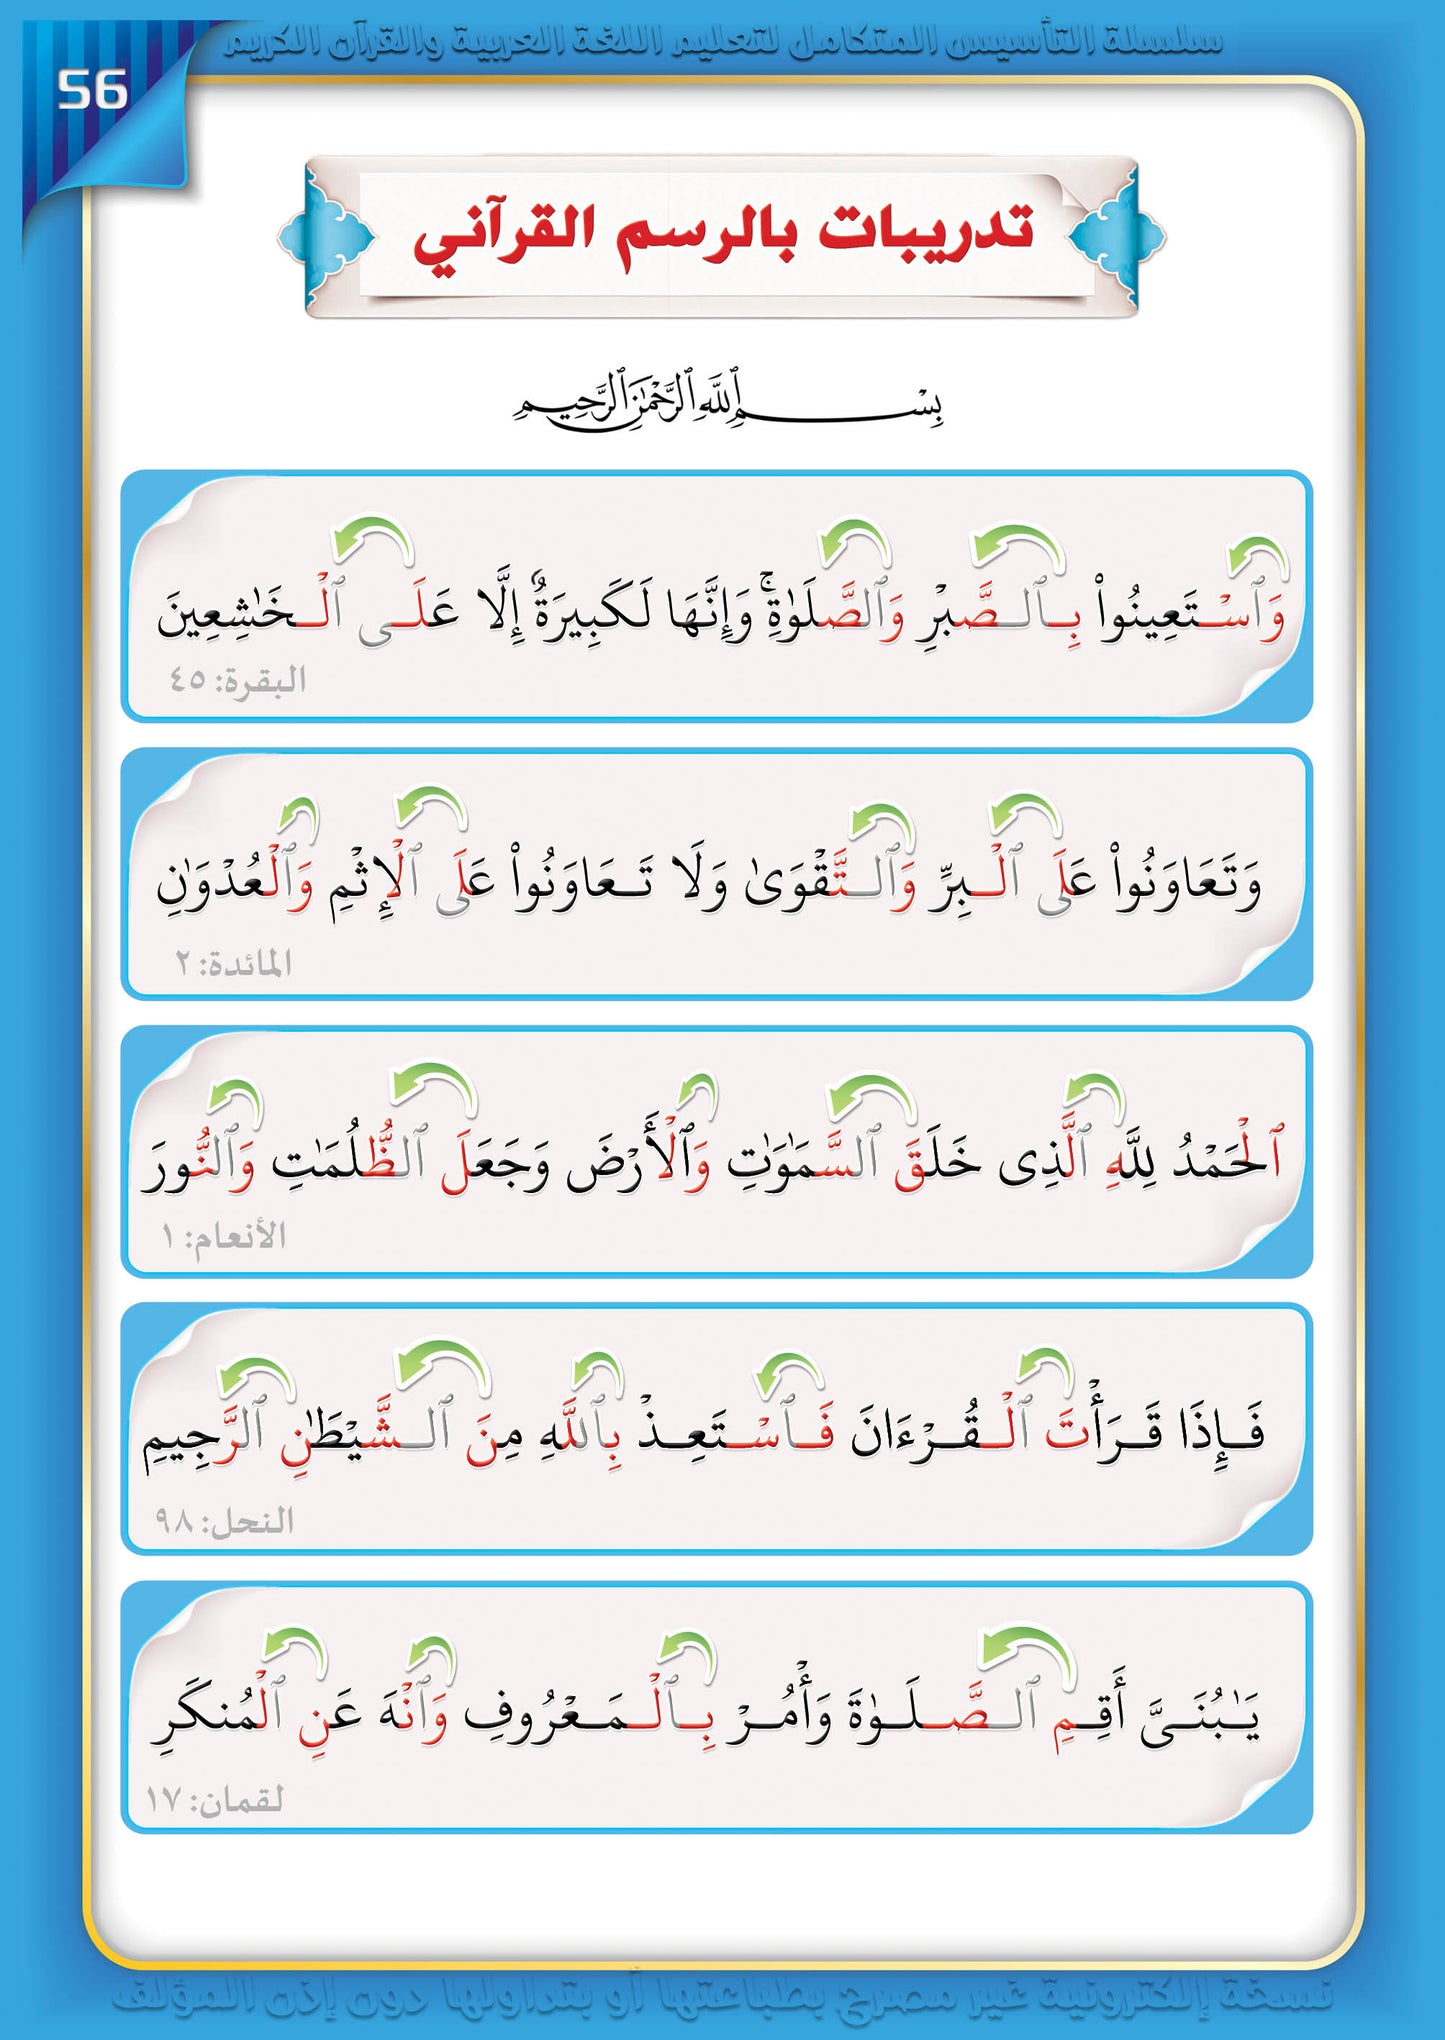 سلسلة التأسيس المتكامل لتعليم اللغة العربية والقرآن الكريم
56
تدريبات بالرسم القرآني
بِسْمِ ٱللَّهِ ٱلرَّحْمَٰنِ ٱلرَّحِيمِ
وَٱسْتَعِينُوا۟ بِٱلصَّبْرِ وَٱلصَّلَوٰةِ ۚ وَإِنَّهَا لَكَبِيرَةٌ إِلَّا عَلَى ٱلْخَٰشِعِينَ
البقرة: ٤٥
وَتَعَاوَنُوا۟ عَلَى ٱلْبِرِّ وَٱلتَّقْوَىٰ وَلَا تَعَاوَنُوا۟ عَلَى ٱلْإِثْمِ وَٱلْعُدْوَٰنِ
المائدة: ٢
ٱلْحَمْدُ لِلَّهِ ٱلَّذِى خَلَقَ ٱلسَّمَٰوَٰتِ وَٱلْأَرْضَ وَجَعَلَ ٱلظُّلُمَٰتِ وَٱلنُّورَ
الأنعام: ١
فَإِذَا قَرَأْتَ ٱلْقُرْءَانَ فَٱسْتَعِذْ بِٱللَّهِ مِنَ ٱلشَّيْطَٰنِ ٱلرَّجِيمِ
النحل: ٩٨
يَٰبُنَىَّ أَقِمِ ٱلصَّلَوٰةَ وَأْمُرْ بِٱلْمَعْرُوفِ وَٱنْهَ عَنِ ٱلْمُنكَرِ
لقمان: ١٧
نسخة إلكترونية غير مصرح بطباعتها أو بتداولها دون إذن المؤلف